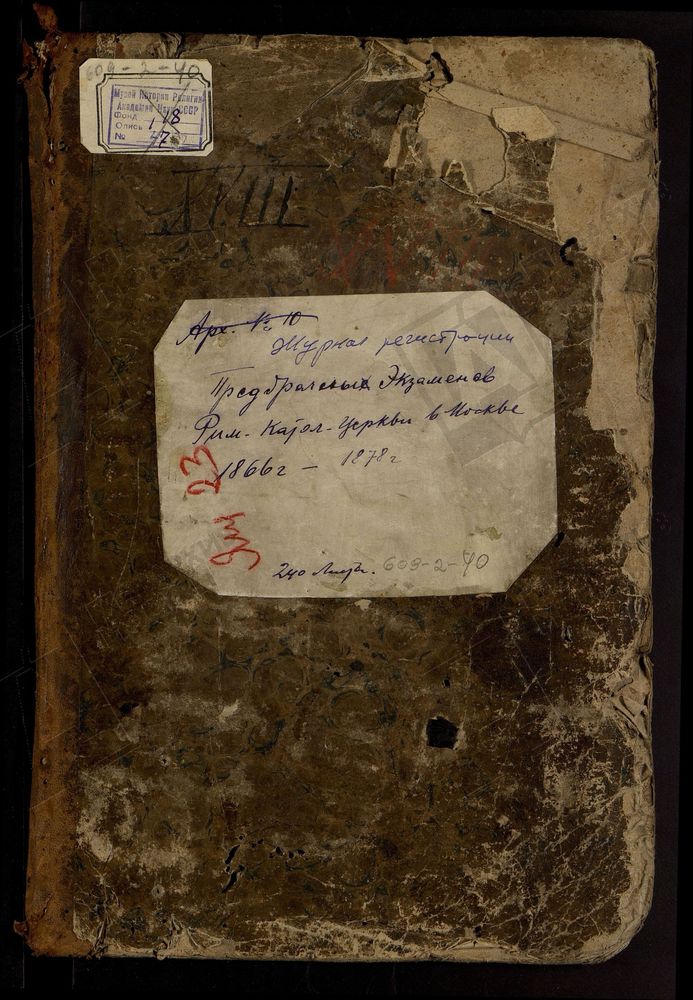 609-2-40
Музей Истории Религии
Академии Наук СССР
Фонд 1
Опись
№
XVIII
Арх. № 10
Журнал регистрации
Предбрачных Экзаменов
Рим-Катол-Церкви в Москве
1866г - 1878г
23
240 листов. 609-2-40